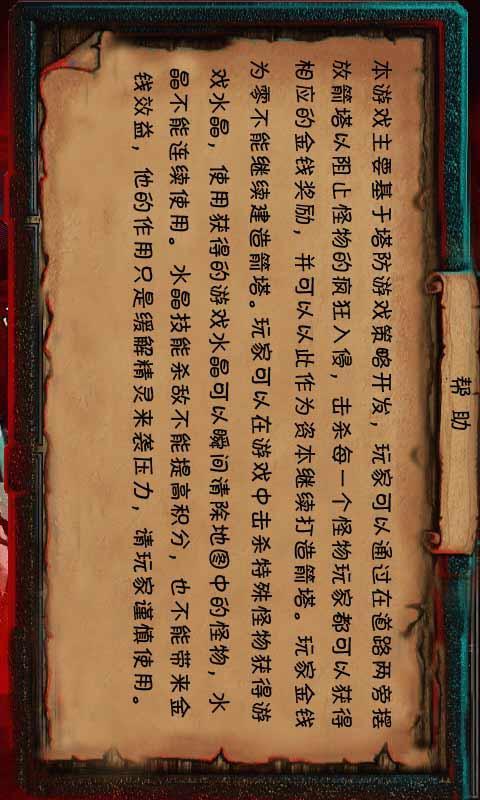 帮助
本游戏主要基于塔防游戏策略开发，玩家可以通过在道路两旁摆
放箭塔以阻止怪物的疯狂入侵，击杀每一个怪物玩家都可以获得
相应的金钱奖励，并可以以此作为资本继续打造箭塔。玩家金钱
为零不能继续建造箭塔。玩家可以在游戏中击杀特殊怪物获得游
戏水晶，使用获得的游戏水晶可以瞬间清除地图中的怪物，水
晶不能连续使用。水晶技能杀敌不能提高积分，也不能带来金
钱效益，他的作用只是缓解精灵来袭压力，请玩家谨慎使用。